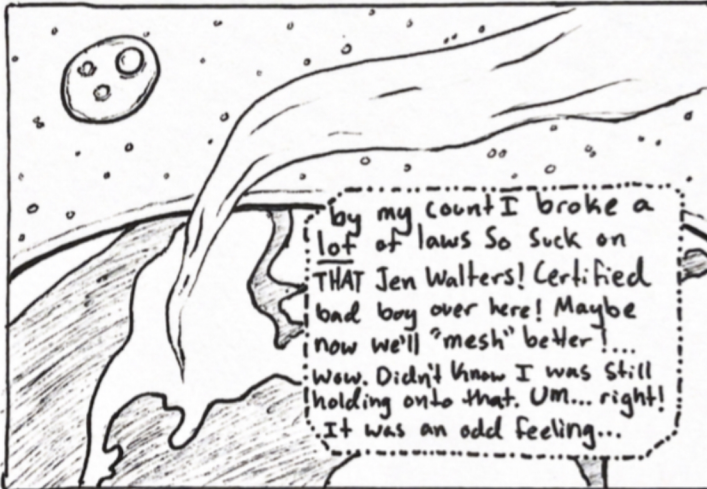 by my count I broke a
lot of laws So Suck on
THAT Jen Walters! Certified
bad boy over here! Maybe
now we'll "mesh" better!....
Wow. Didn't know I was still
holding onto that. Um... right!
It was an odd feeling...